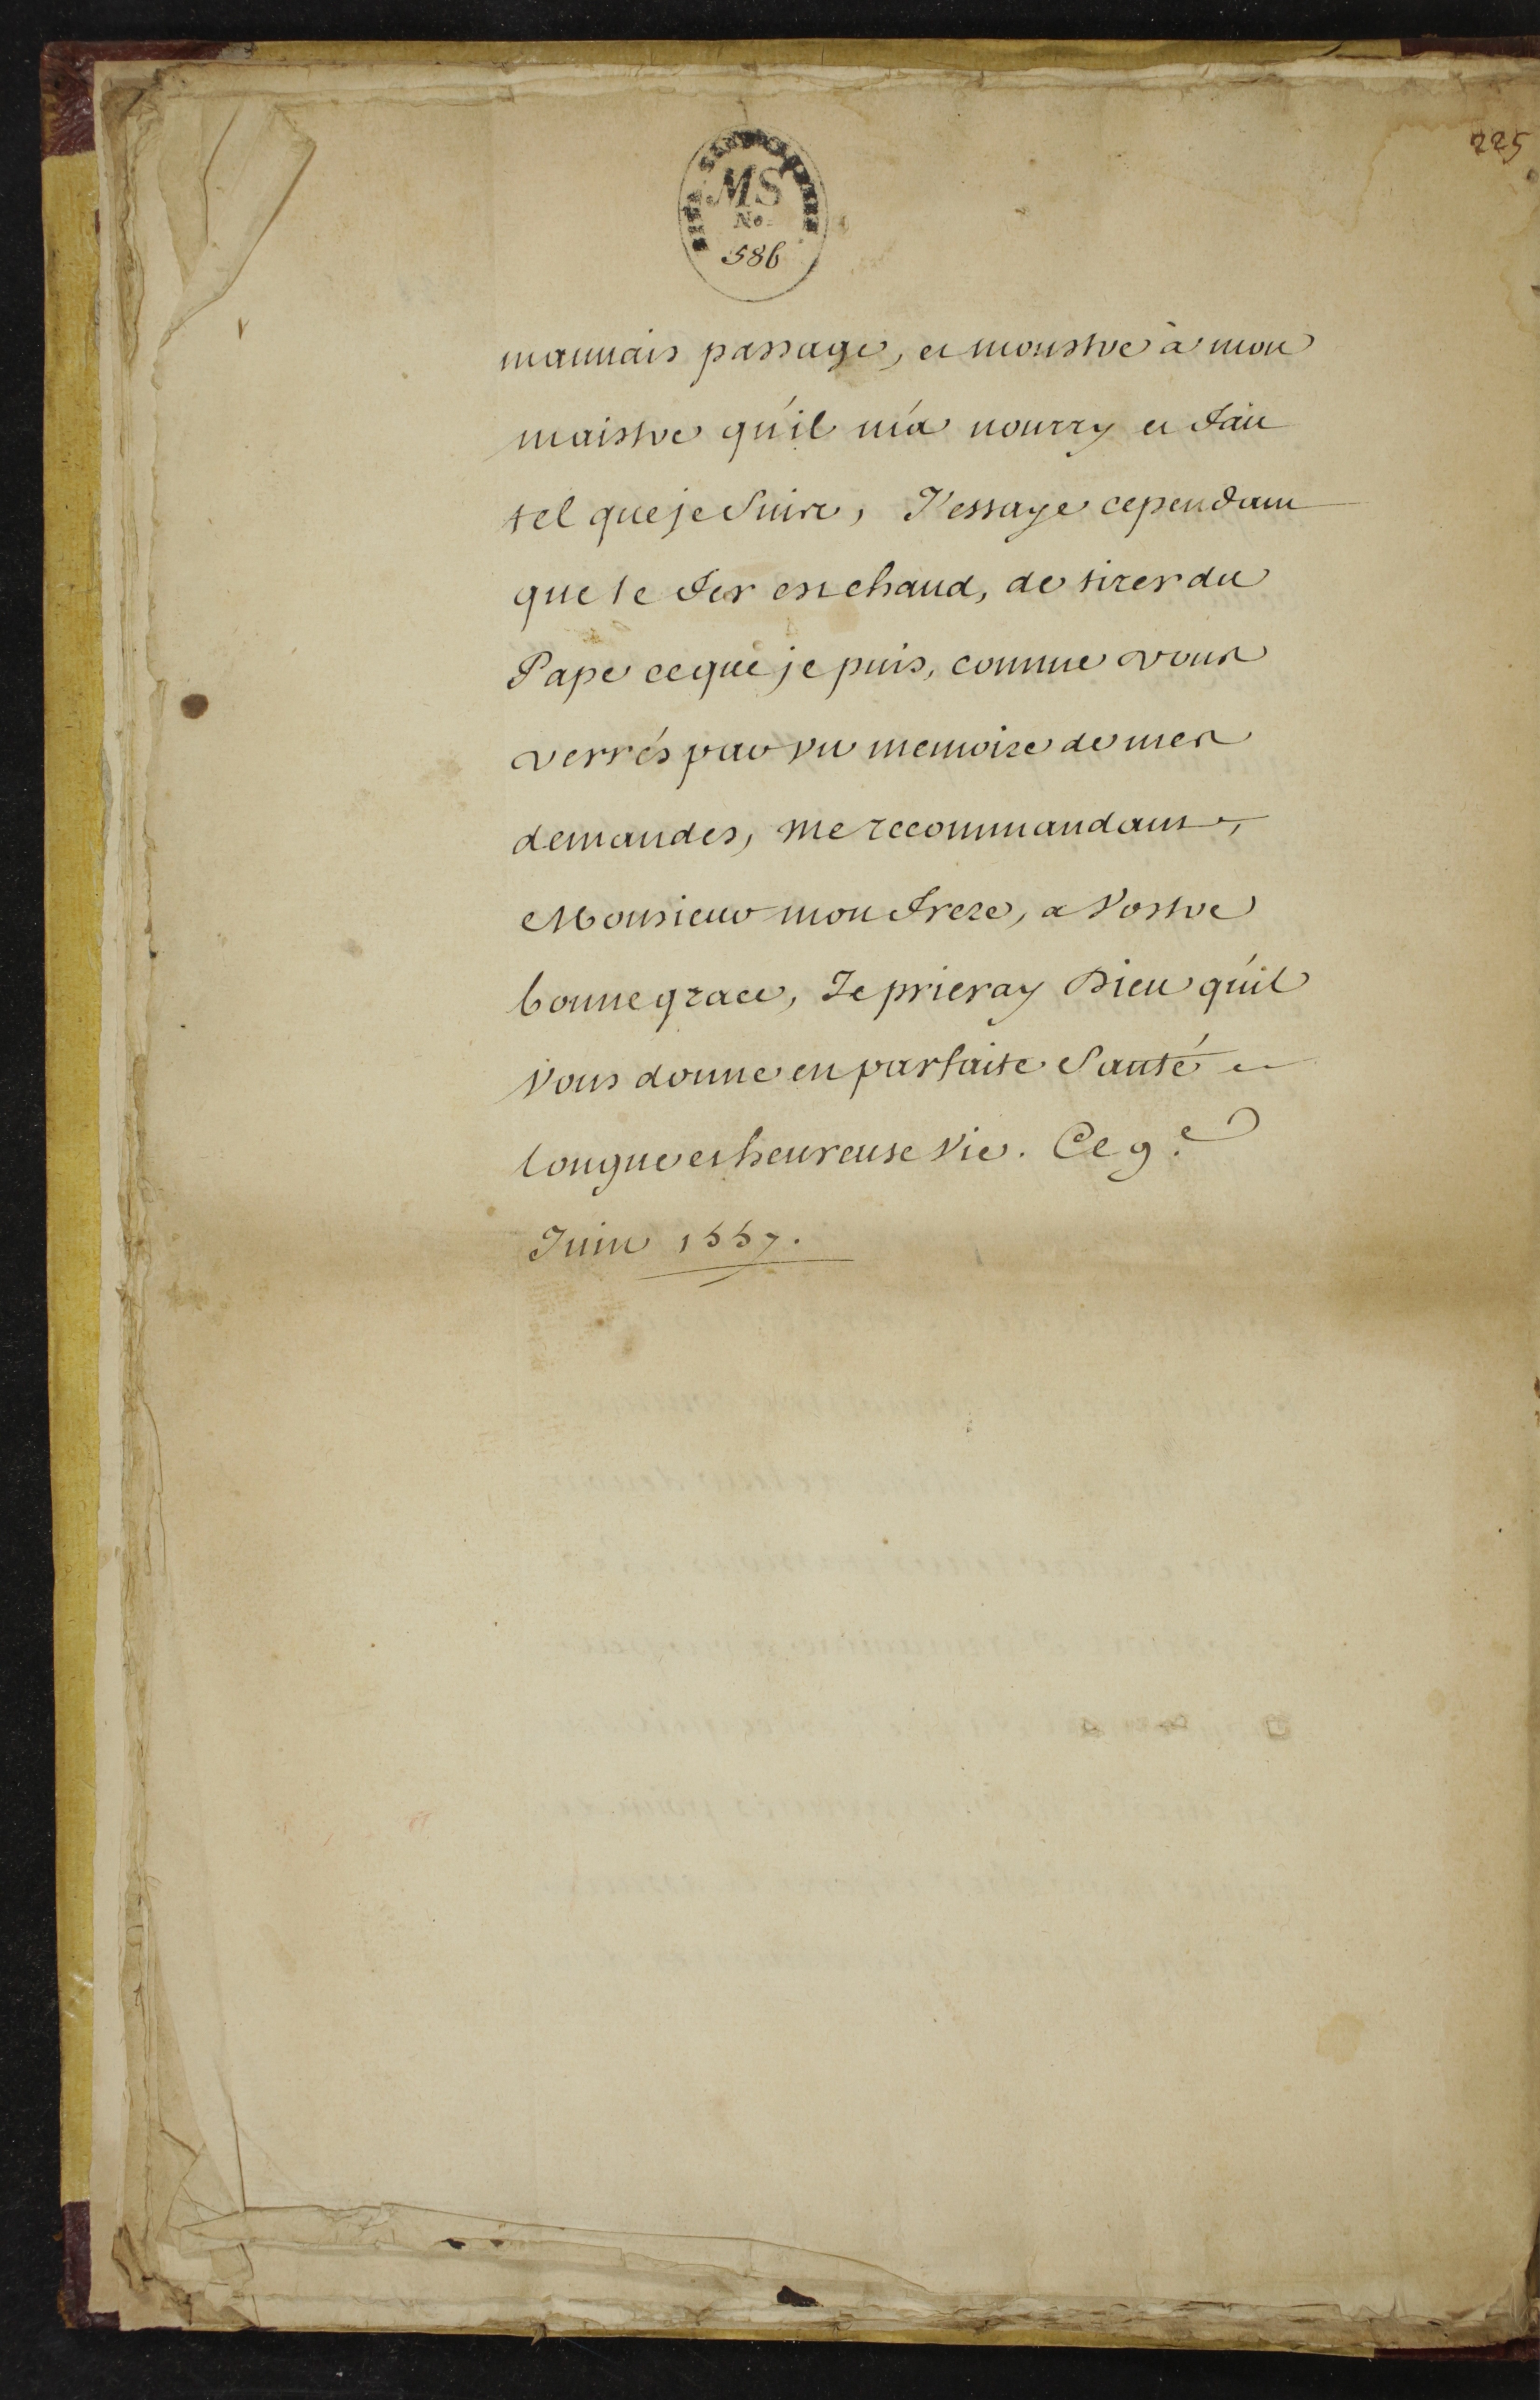 225
MS
No.
586
mauuais passage, et monstre à mon
maistre qu'il m'a nourry et fait
tel que je suis, J'essaye cependant
que le fer est chaud, de tirer du
Pape ce que je puis, comme vous
verrés par vn memoire de mes
demandes, me recommandant,
Monsieur mon frere, a Vostre
bonne grace, Je prieray Dieu qu'il
Vous donne en parfaite Santé
longue et heureuse Vie. Ce 9.e
Juin 1557.